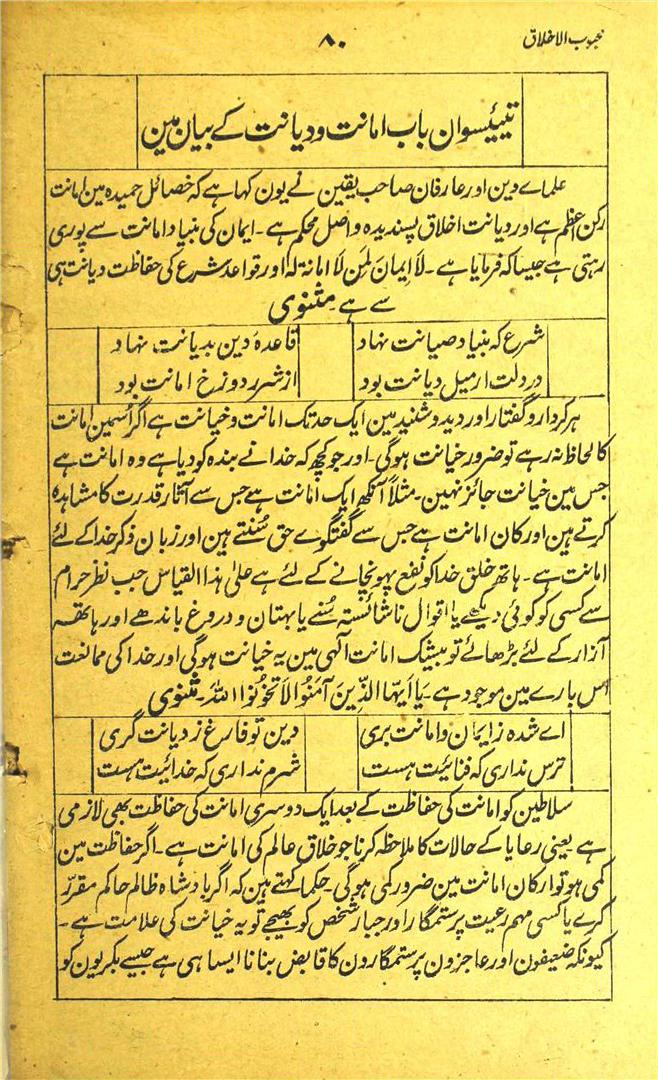 محبوب الاخلاق
۸۰
تیئیسوان باب امانت و دیانت کے بیان مین
علماے دین اور عارفان صاحب یقین نے یون کہا ہے کہ خصائل حمیدہ مین امانت
رکن اعظم ہے اور دیانت اخلاق پسندیدہ و اصل محکم ہے۔ ایمان کی بنیاد امانت سے پوری
رہتی ہے جیسا کہ فرمایا ہے۔ لَا اِیمانَ لِمَن لَا امانة لهُ اور قواعد شرع کی حفاظت دیانت ہی
سے ہے۔ مثنوی
شرع کہ بنیاد صیانت نہاد قاعدۂ دین بدیانت نہاد
در دلت ار میل دیانت بود از شرر دوزخ امانت بود
ہر کردار و گفتار اور دید و شنید مین ایک حد تک امانت و خیانت ہے اگر اُسمین امانت
کا لحاظ نہ رہے تو ضرور خیانت ہوگی۔ اور جو کچھ کہ خدا نے بندہ کو دیا ہے وہ امانت ہے
جس مین خیانت جائز نہین۔ مثلاً آنکھ ایک امانت ہے جس سے آثار قدرت کا مشاہدہ
کرتے ہین اور کان امانت ہے جس سے گفتگوے حق سُنتے ہین اور زبان ذکر خدا کے لئے
امانت ہے۔ ہاتھ خلق خدا کو نفع پہونچانے کے لئے ہے علیٰ ہذا القیاس جب نظر حرام
سے کسی کو کوئی دیکھے یا اقوال ناشائستہ سُنے یا بہتان و دروغ باندھے اور ہاتھہ
آزار کے لئے بڑھائے تو بیشک امانت الٰہی مین یہ خیانت ہوگی اور خدا کی ممانعت
اس بارے مین موجود ہے۔ یَا اَیہا الَّذِینَ آمَنُوا لاَ تَخُونُوا اللّٰہَ۔ مثنوی
اے شدہ ز ایمان و امانت بری دین تو فارغ ز دیانت گری
ترس نداری کہ فنائیت ہست شرم نداری کہ خدائیت ہست
سلاطین کو امانت کی حفاظت کے بعد ایک دوسری امانت کی حفاظت بھی لازمی
ہے یعنی رعایا کے حالات کا ملاحظہ کرنا جو خلاق عالم کی امانت ہے۔ اگر حفاظت مین
کمی ہو تو ارکان امانت مین ضرور کمی ہوگی۔ حکما کہتے ہین کہ اگر بادشاہ ظالم حاکم مقرر
کرے یا کسی مہم رعیت پر ستمگار اور جبار شخص کو بھیجے تو یہ خیانت کی علامت ہے۔
کیونکہ ضعیفون اور عاجزون پر ستمگارون کا قابض بنانا ایسا ہی ہے جیسے بکریون کو